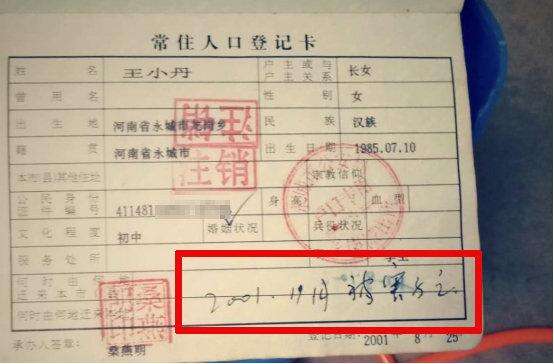 常住人口登记卡
姓名 王小丹 户主或与户主关系 长女
曾用名 性别 女
出生地 河南省永城市龙岗乡 民族 汉族
籍贯 河南省永城市 出生日期 1985.07.10
本市(县)其他住址 宗教信仰
公民身份证件编号 411481 身高 血型
文化程度 初中 婚姻状况 兵役状况
服务处所
何时由何
迁来本市(
何时由何地迁来本
2001.
承办人签章: 桑燕明 登记日期: 2001 年 8 月 25
注销